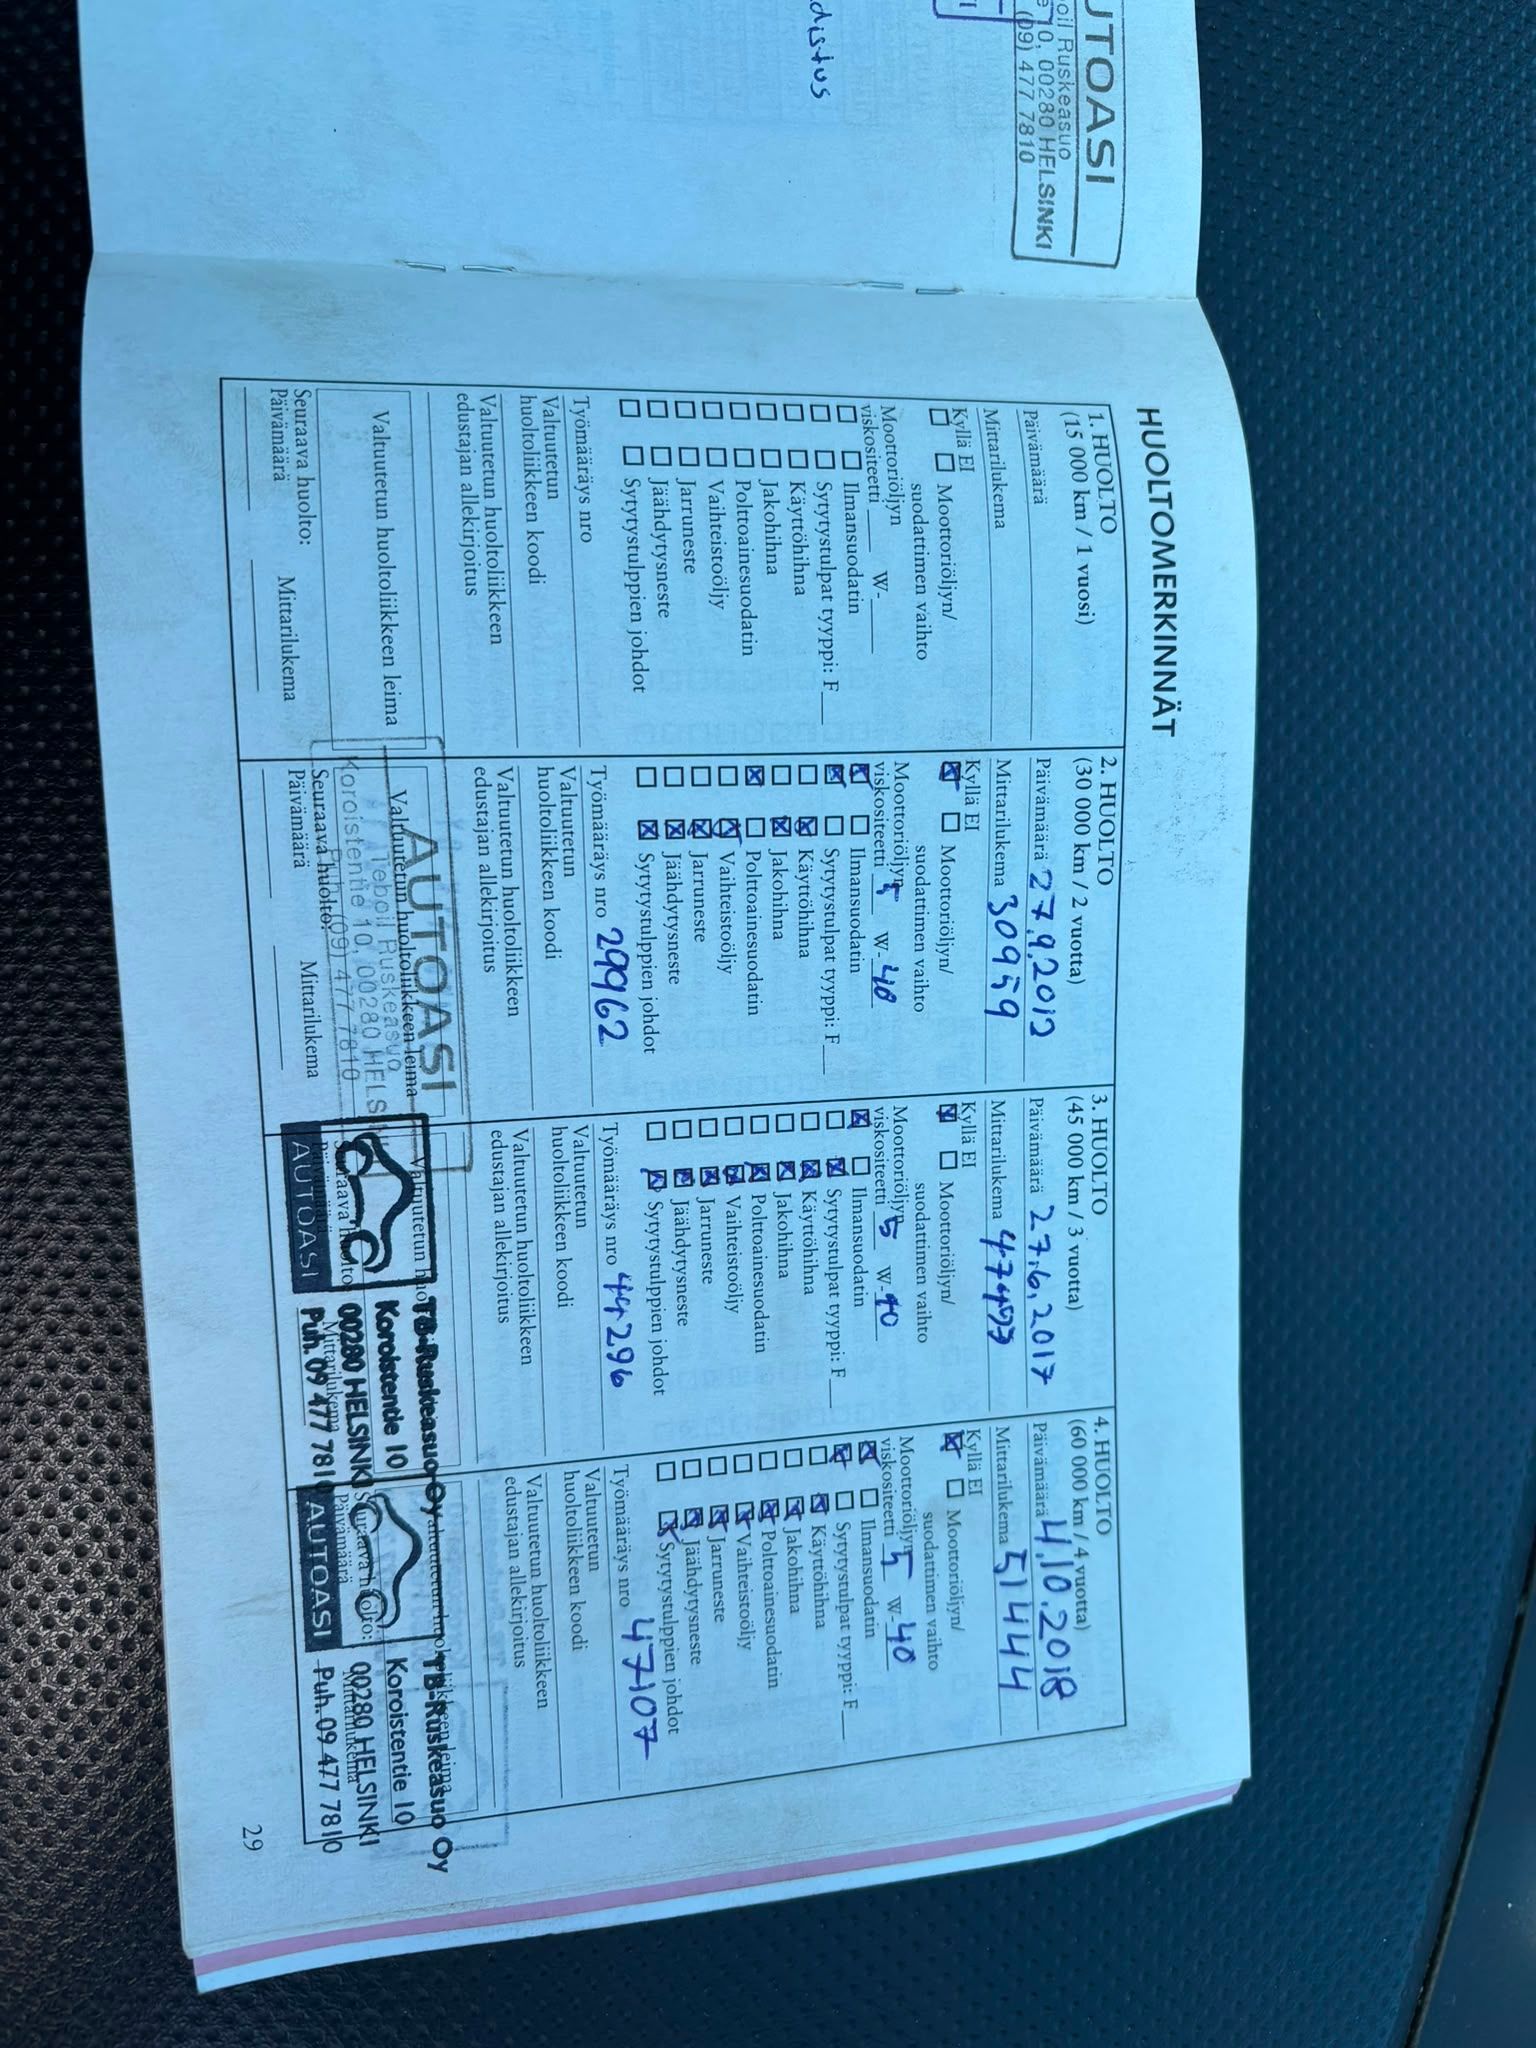 distus
UTOASI
oil Ruskeasuo
e 10, 00280 HELSINKI
(09) 477 7810
HUOLTOMERKINNÄT
1. HUOLTO
(15 000 km / 1 vuosi)
Päivämäärä
Mittarilukema
Kyllä EI
Moottoriöljyn/
suodattimen vaihto
Moottoriöljyn
viskositeetti W-
Ilmansuodatin
Sytytystulpat tyyppi: F
Käyttöhihna
Jakohihna
Polttoainesuodatin
Vaihteistoöljy
Jarruneste
Jäähdytysneste
Sytytystulppien johdot
Työmääräys nro
Valtuutetun
huoltoliikkeen koodi
Valtuutetun huoltoliikkeen
edustajan allekirjoitus
Valtuutetun huoltoliikkeen leima
Seuraava huolto:
Päivämäärä Mittarilukema
2. HUOLTO
(30 000 km / 2 vuotta)
Päivämäärä 27.9.2012
Mittarilukema 30959
Kyllä EI
Moottoriöljyn/
suodattimen vaihto
Moottoriöljyn
viskositeetti 5 W-40
Ilmansuodatin
Sytytystulpat tyyppi: F
Käyttöhihna
Jakohihna
Polttoainesuodatin
Vaihteistoöljy
Jarruneste
Jäähdytysneste
Sytytystulppien johdot
Työmääräys nro 29962
Valtuutetun
huoltoliikkeen koodi
Valtuutetun huoltoliikkeen
edustajan allekirjoitus
Valtuutetun huoltoliikkeen leima
AUTOASI
Teboil Ruskeasuo
Koroistentie 10, 00280 HELS
Puh. (09) 477 7810
Seuraava huolto:
Päivämäärä Mittarilukema
3. HUOLTO
(45 000 km / 3 vuotta)
Päivämäärä 27.6.2017
Mittarilukema
Kyllä EI
Moottoriöljyn/
suodattimen vaihto
Moottoriöljyn
viskositeetti 5 W-40
Ilmansuodatin
Sytytystulpat tyyppi: F
Käyttöhihna
Jakohihna
Polttoainesuodatin
Vaihteistoöljy
Jarruneste
Jäähdytysneste
Sytytystulppien johdot
Työmääräys nro 44296
Valtuutetun
huoltoliikkeen koodi
Valtuutetun huoltoliikkeen
edustajan allekirjoitus
Valtuutetun huo
TB-Ruskeasuo Oy
Koroistentie 10
00280 HELSINKI
Puh. 09 477 7810
AUTOASI
Mittarilukema
4. HUOLTO
(60 000 km / 4 vuotta)
Päivämäärä 4.10.2018
Mittarilukema 51444
Kyllä EI
Moottoriöljyn/
suodattimen vaihto
Moottoriöljyn
viskositeetti 5 W-40
Ilmansuodatin
Sytytystulpat tyyppi: F
Käyttöhihna
Jakohihna
Polttoainesuodatin
Vaihteistoöljy
Jarruneste
Jäähdytysneste
Sytytystulppien johdot
Työmääräys nro 47107
Valtuutetun
huoltoliikkeen koodi
Valtuutetun huoltoliikkeen
edustajan allekirjoitus
TB-Ruskeasuo Oy
Koroistentie 10
00280 HELSINKI
Puh. 09 477 7810
AUTOASI
Seuraava huolto:
Päivämäärä Mittarilukema
29